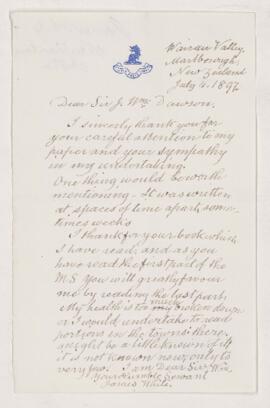 Wairau Valley,
Marlborough,
New Zealand
July 4. 1897
Dear Sir J. Wm. Dawson.
I sincerely thank you for
your careful attention to my
paper and your sympathy
in my undertaking.
One thing, would be worth
mentioning - It was written
at spaces of time apart, some-
times weeks.
I thank for your book which
I have read, and as you
have read the first part of the
M.S. You will greatly favour
me by reading the last part.
My health is too much broken down
or I would undertake to read
portions in the towns; there
might be a little known of it
it is not known now, only to
very few. I am Dear Sir Wm
Your humble servant
James White.